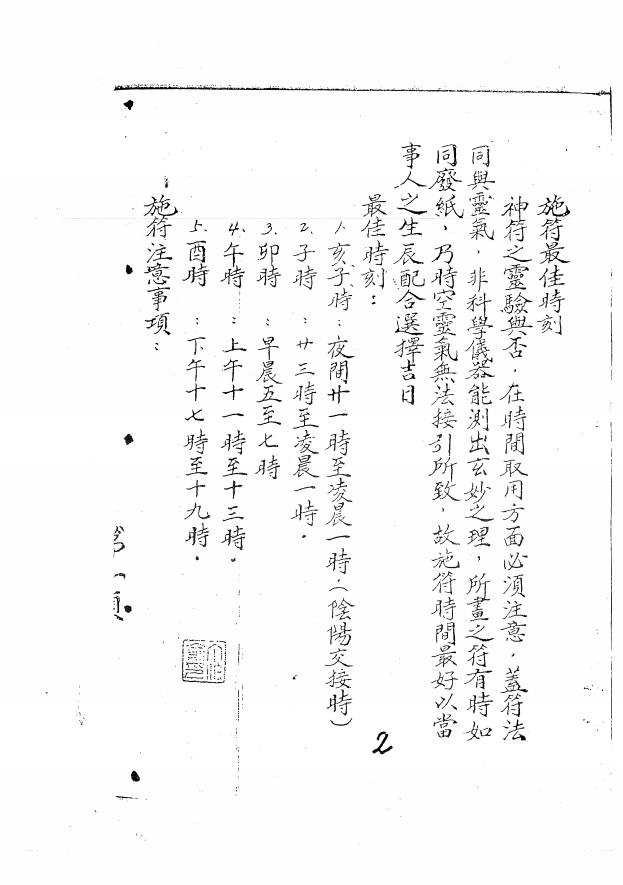 施符最佳時刻
神符之靈驗與否，在時間取用方面必須注意，蓋符法
同與靈氣，非科學儀器能測出玄妙之理，所畫之符有時如
同廢紙，乃時空靈氣無法接引所致，故施符時間最好以當
事人之生辰配合選擇吉日
最佳時刻：
1.亥子時：夜間廿一時至凌晨一時.（陰陽交接時）
2.子時：廿三時至凌晨一時.
3.卯時：早晨五至七時
4.午時：上午十一時至十三時.
5.酉時：下午十七時至十九時.
施符注意事項：
2